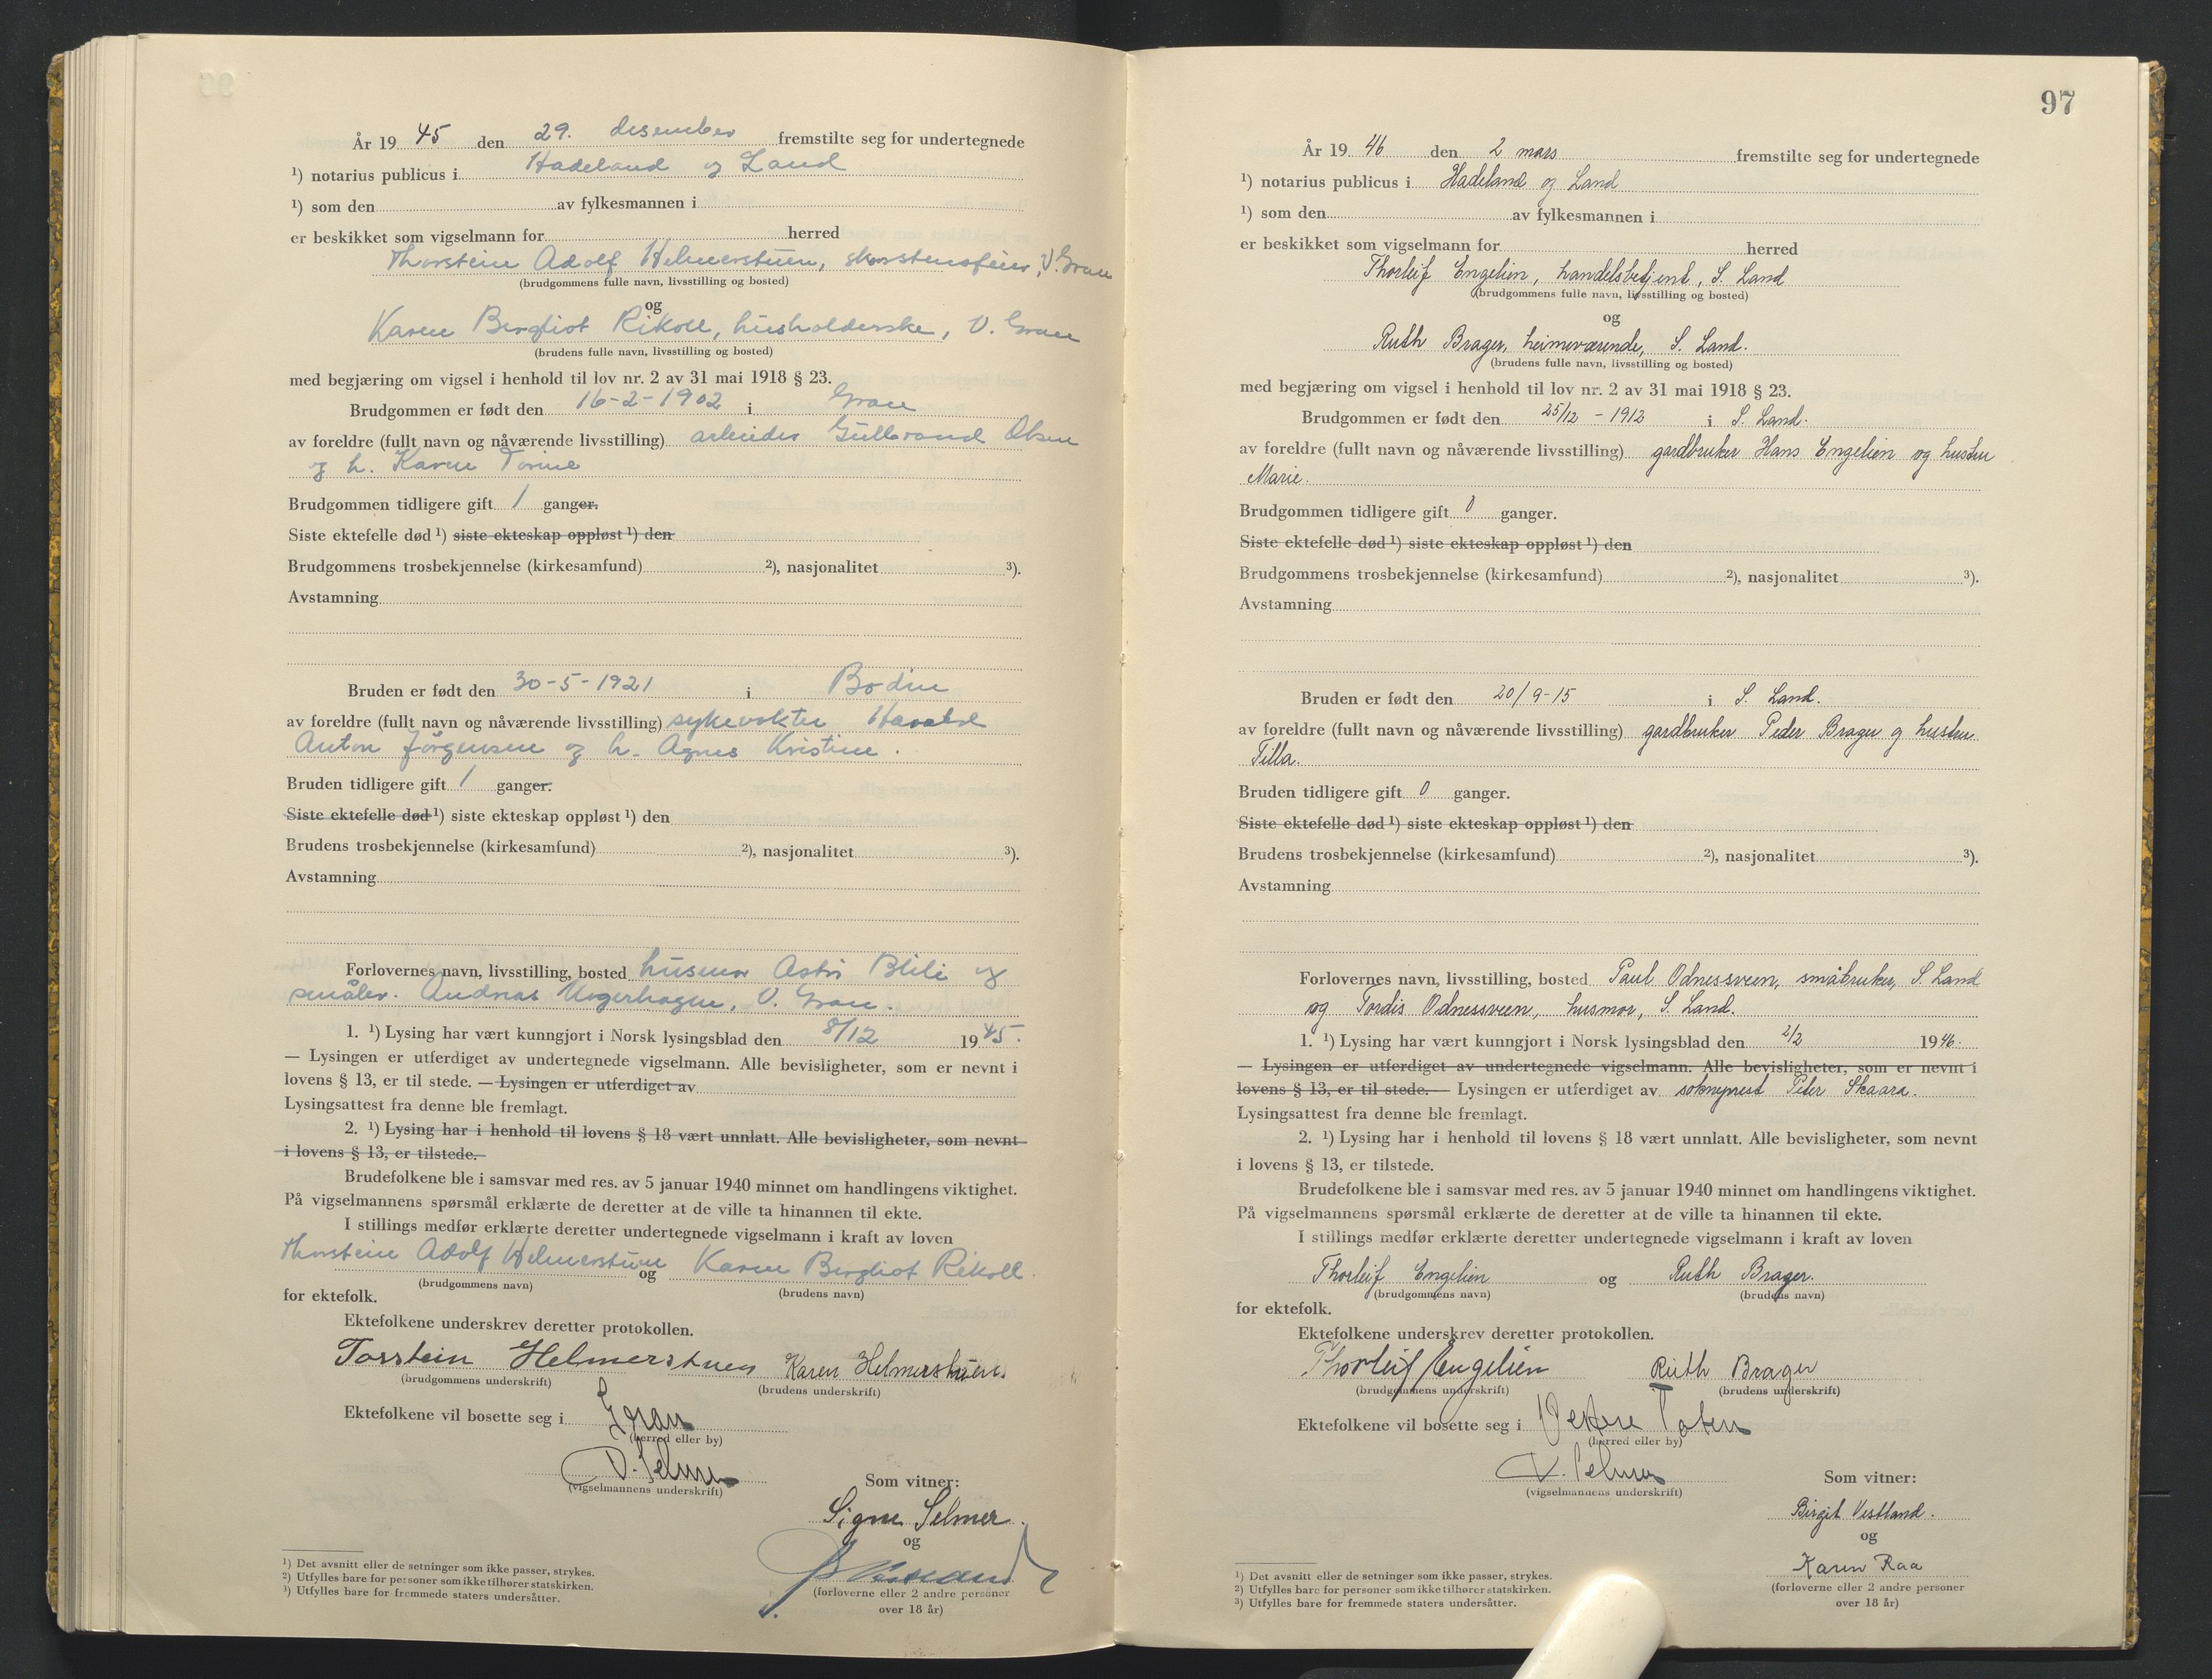 År 19 45 den 29. desember fremstilte seg for undertegnede
¹) notarius publicus i Hadeland og Land
¹) som den av fylkesmannen i
er beskikket som vigselmann for herred
Thorstein Adolf Helmerstuen, skorstensfeier, V. Gran
(brudgommens fulle navn, livsstilling og bosted)
og
Karen Bergliot Rikoll, husholderske, V. Gran
(brudens fulle navn, livsstilling og bosted)
med begjæring om vigsel i henhold til lov nr. 2 av 31 mai 1918 § 23.
Brudgommen er født den 16-2-1902 i Gran
av foreldre (fullt navn og nåværende livsstilling) arbeider Gullbrand Olsen
og h. Karen Torine
Brudgommen tidligere gift 1 ganger.
Siste ektefelle død ¹) siste ekteskap oppløst ¹) den
Brudgommens trosbekjennelse (kirkesamfund) ²), nasjonalitet ³).
Avstamning
Bruden er født den 30-5-1921 i Bodin
av foreldre (fullt navn og nåværende livsstilling) sykevokter Harald
Anton Jörgensen og h. Agnes Kristine.
Bruden tidligere gift 1 ganger.
Siste ektefelle død ¹) siste ekteskap oppløst ¹) den
Brudens trosbekjennelse (kirkesamfund) ²), nasjonalitet ³).
Avstamning
Forlovernes navn, livsstilling, bosted husmor Astri Blili og
Andreas V. Gran.
1. ¹) Lysing har vært kunngjort i Norsk lysingsblad den 8/12 1945.
— Lysingen er utferdiget av undertegnede vigselmann. Alle bevisligheter, som er nevnt i
lovens § 13, er til stede. — Lysingen er utferdiget av
Lysingsattest fra denne ble fremlagt.
2. ¹) Lysing har i henhold til lovens § 18 vært unnlatt. Alle bevisligheter, som nevnt
i lovens § 13, er tilstede.
Brudefolkene ble i samsvar med res. av 5 januar 1940 minnet om handlingens viktighet.
På vigselmannens spørsmål erklærte de deretter at de ville ta hinannen til ekte.
I stillings medfør erklærte deretter undertegnede vigselmann i kraft av loven
Thorstein Adolf Helmerstuen og Karen Bergliot Rikoll.
(brudgommens navn) (brudens navn)
for ektefolk.
Ektefolkene underskrev deretter protokollen.
Torstein Helmerstuen Karen Helmerstuen.
(brudgommens underskrift) (brudens underskrift)
Ektefolkene vil bosette seg i Gran
(herred eller by)
D. Selmer
(vigselmannens underskrift)
Som vitner:
Signe Selmer.
og
(forloverne eller 2 andre personer
over 18 år)
¹) Det avsnitt eller de setninger som ikke passer, strykes.
²) Utfylles bare for personer som ikke tilhører statskirken.
³) Utfylles bare for fremmede staters undersåtter.
97
År 19 46 den 2 mars fremstilte seg for undertegnede
¹) notarius publicus i Hadeland og Land
¹) som den av fylkesmannen i
er beskikket som vigselmann for herred
Thorleif Engelien, handelsbetjent, S. Land
(brudgommens fulle navn, livsstilling og bosted)
og
Ruth Brager, heimeværende, S. Land.
(brudens fulle navn, livsstilling og bosted)
med begjæring om vigsel i henhold til lov nr. 2 av 31 mai 1918 § 23.
Brudgommen er født den 25/12 - 1912 i S. Land.
av foreldre (fullt navn og nåværende livsstilling) gardbruker Hans Engelien og hustru
Marie.
Brudgommen tidligere gift 0 ganger.
Siste ektefelle død ¹) siste ekteskap oppløst ¹) den
Brudgommens trosbekjennelse (kirkesamfund) ²), nasjonalitet ³).
Avstamning
Bruden er født den 20/9-15 i S. Land.
av foreldre (fullt navn og nåværende livsstilling) gardbruker Peder Brager og hustru
Tilla.
Bruden tidligere gift 0 ganger.
Siste ektefelle død ¹) siste ekteskap oppløst ¹) den
Brudens trosbekjennelse (kirkesamfund) ²), nasjonalitet ³).
Avstamning
Forlovernes navn, livsstilling, bosted Paul Odnessveen, småbruker, S. Land
og Tordis Odnessveen, husmor, S. Land.
1. ¹) Lysing har vært kunngjort i Norsk lysingsblad den 2/2 1946.
— Lysingen er utferdiget av undertegnede vigselmann. Alle bevisligheter, som er nevnt i
lovens § 13, er til stede. — Lysingen er utferdiget av sokneprest Peter Skaara.
Lysingsattest fra denne ble fremlagt.
2. ¹) Lysing har i henhold til lovens § 18 vært unnlatt. Alle bevisligheter, som nevnt
i lovens § 13, er tilstede.
Brudefolkene ble i samsvar med res. av 5 januar 1940 minnet om handlingens viktighet.
På vigselmannens spørsmål erklærte de deretter at de ville ta hinannen til ekte.
I stillings medfør erklærte deretter undertegnede vigselmann i kraft av loven
Thorleif Engelien og Ruth Brager.
(brudgommens navn) (brudens navn)
for ektefolk.
Ektefolkene underskrev deretter protokollen.
Thorleif Engelien Ruth Brager
(brudgommens underskrift) (brudens underskrift)
Ektefolkene vil bosette seg i Vestre Toten
(herred eller by)
D. Selmer
(vigselmannens underskrift)
Som vitner:
Birgit Vestland.
og
Karen Raa
(forloverne eller 2 andre personer
over 18 år)
¹) Det avsnitt eller de setninger som ikke passer, strykes.
²) Utfylles bare for personer som ikke tilhører statskirken.
³) Utfylles bare for fremmede staters undersåtter.